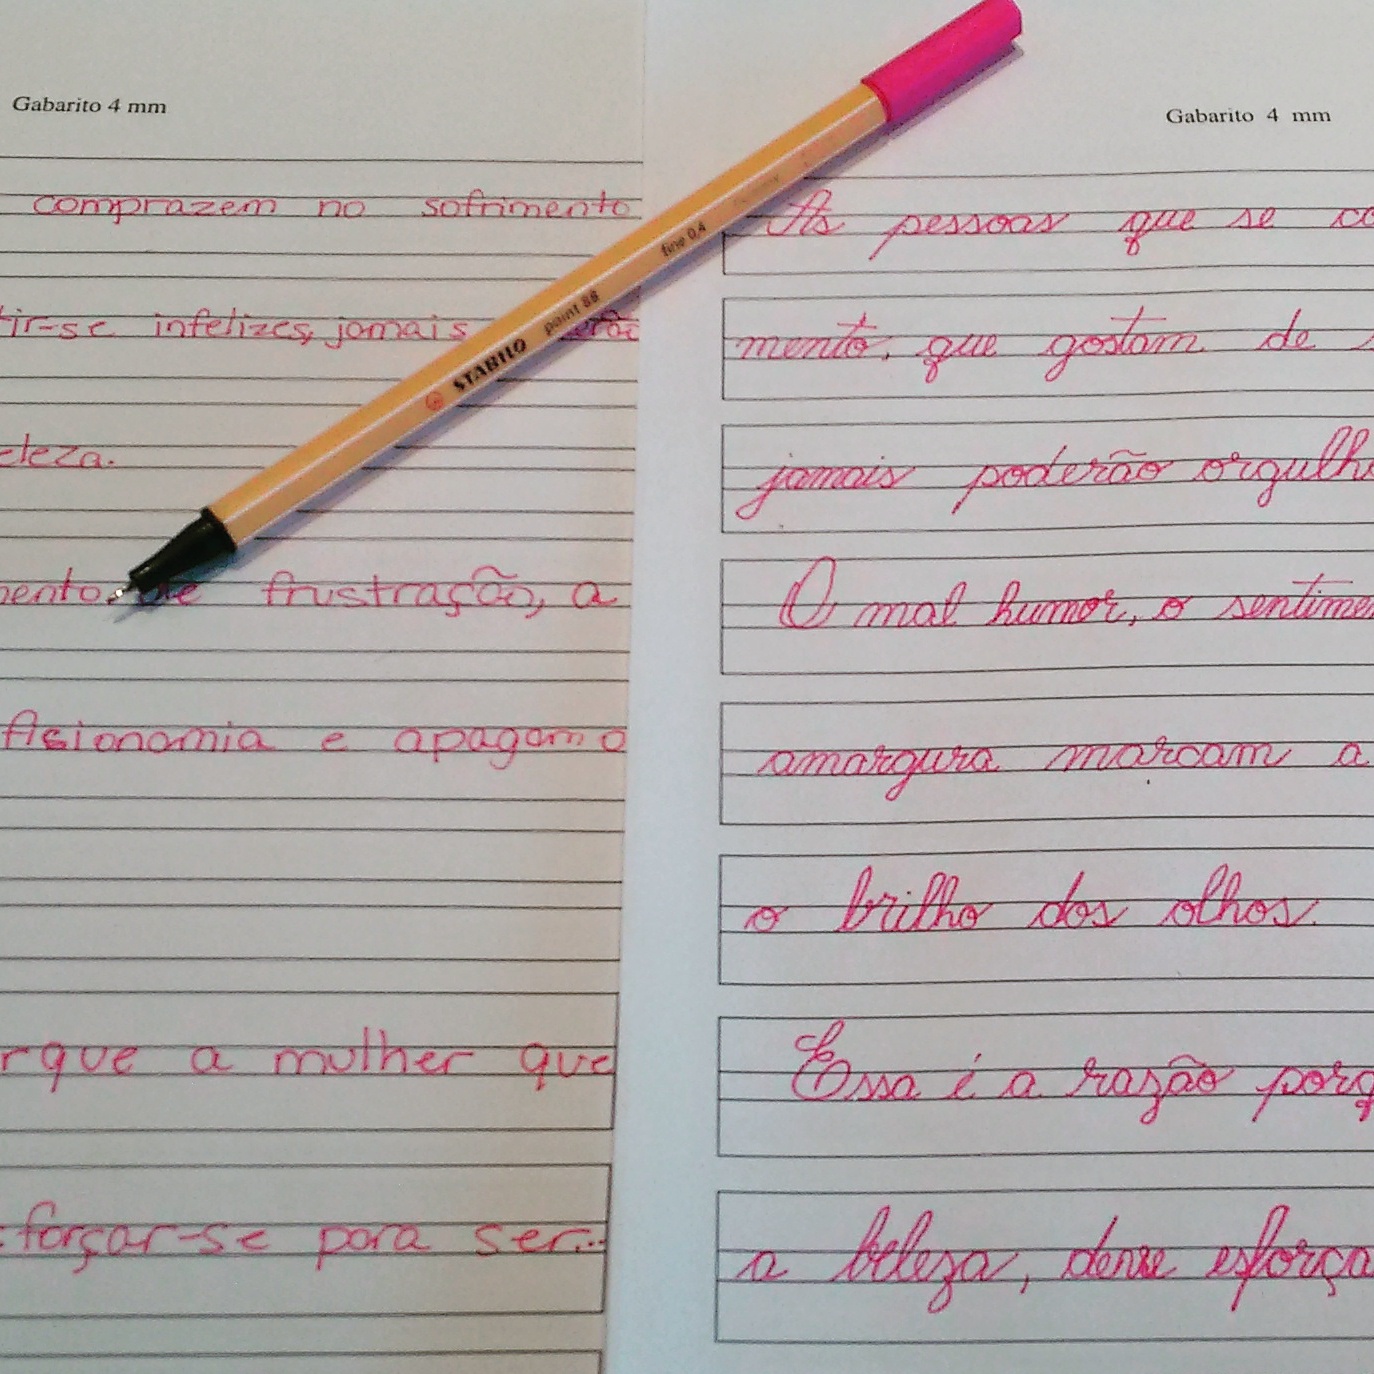 Gabarito 4 mm
comprazem no sofrimento
tir-se infelizes, jamais
eleza.
mento de frustração, a
fisionomia e apagam o
rque a mulher que
forçar-se para ser...
STABILO point 88 fine 0,4
Gabarito 4 mm
As pessoas que se co
mento, que gostam de
jamais poderão orgulh
O mal humor, o sentime
amargura marcam a
o brilho dos olhos.
Essa é a razão porq
a beleza, deve esforça